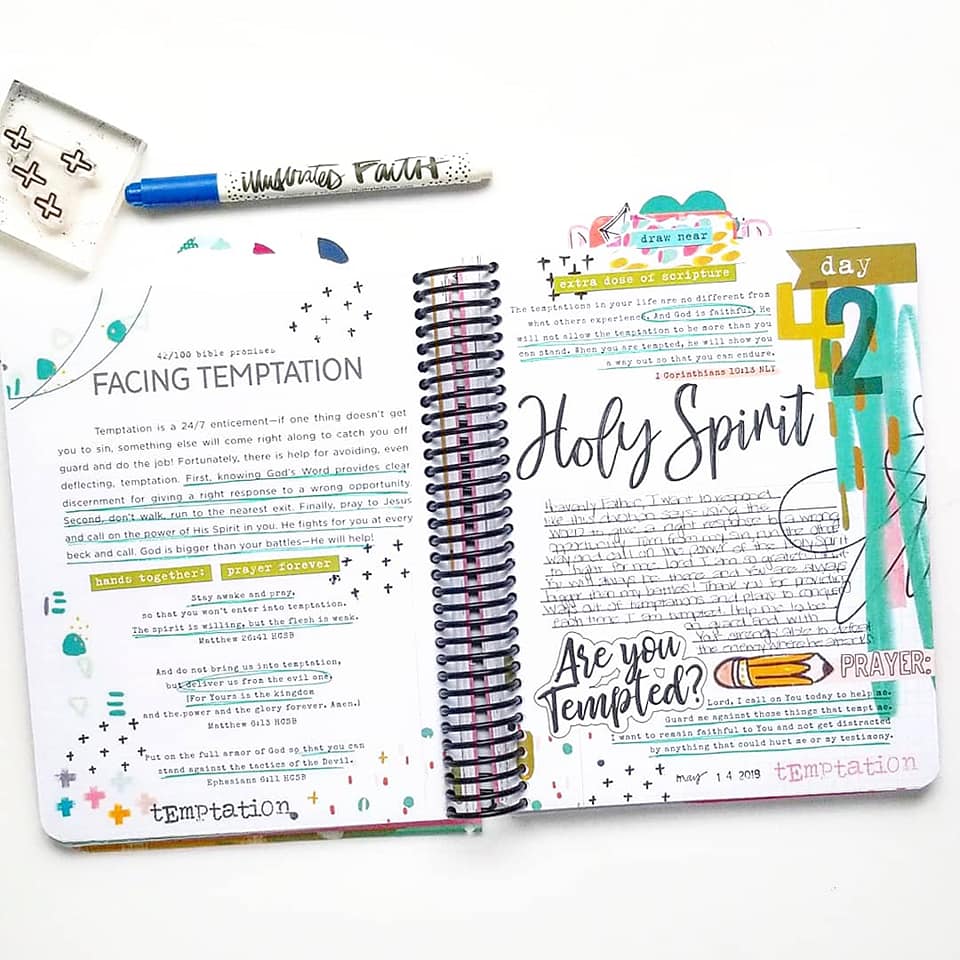 illustrated Faith
42/100 bible promises
FACING TEMPTATION
Temptation is a 24/7 enticement—if one thing doesn't get
you to sin, something else will come right along to catch you off
guard and do the job! Fortunately, there is help for avoiding, even
deflecting, temptation. First, knowing God's Word provides clear
discernment for giving a right response to a wrong opportunity.
Second, don't walk, run to the nearest exit. Finally, pray to Jesus
and call on the power of His Spirit in you. He fights for you at every
beck and call. God is bigger than your battles—He will help!
hands together: prayer forever
Stay awake and pray,
so that you won't enter into temptation.
The spirit is willing, but the flesh is weak.
Matthew 26:41 HCSB
And do not bring us into temptation,
but deliver us from the evil one.
[For Yours is the kingdom
and the power and the glory forever. Amen.]
Matthew 6:13 HCSB
Put on the full armor of God so that you can
stand against the tactics of the Devil.
Ephesians 6:11 HCSB
tEmptation
draw near
extra dose of scripture
day
42
The temptations in your life are no different from
what others experience. And God is faithful. He
will not allow the temptation to be more than you
can stand. When you are tempted, he will show you
a way out so that you can endure.
1 Corinthians 10:13 NLT
Holy Spirit
Heavenly Father, I want to respond
like this devotion says: using the
word to give a right response to a wrong
opportunity. Turn from my sin, run the other
way and call on the power of the Holy Spirit
to fight for me. Lord, I am so grateful that
You will always be there and You are always
bigger than my battles! Thank you for providing
way out of temptations and
each time I am tempted. Help me to be
on guard and with
Your strength able to defeat
the enemy where he stands.
Are you
Tempted?
PRAYER:
Lord, I call on You today to help me.
Guard me against those things that tempt me.
I want to remain faithful to You and not get distracted
by anything that could hurt me or my testimony.
may 14 2019
tEmptation